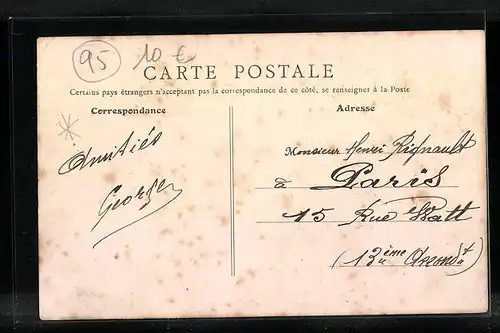 95
10 €
CARTE POSTALE
Certains pays étrangers n'acceptant pas la correspondance de ce côté, se renseigner à la Poste
Correspondance
Adresse
Amitiés
Georges
Monsieur Henri Rignault
à Paris
15 Rue Watt
(13ème Arrondt)